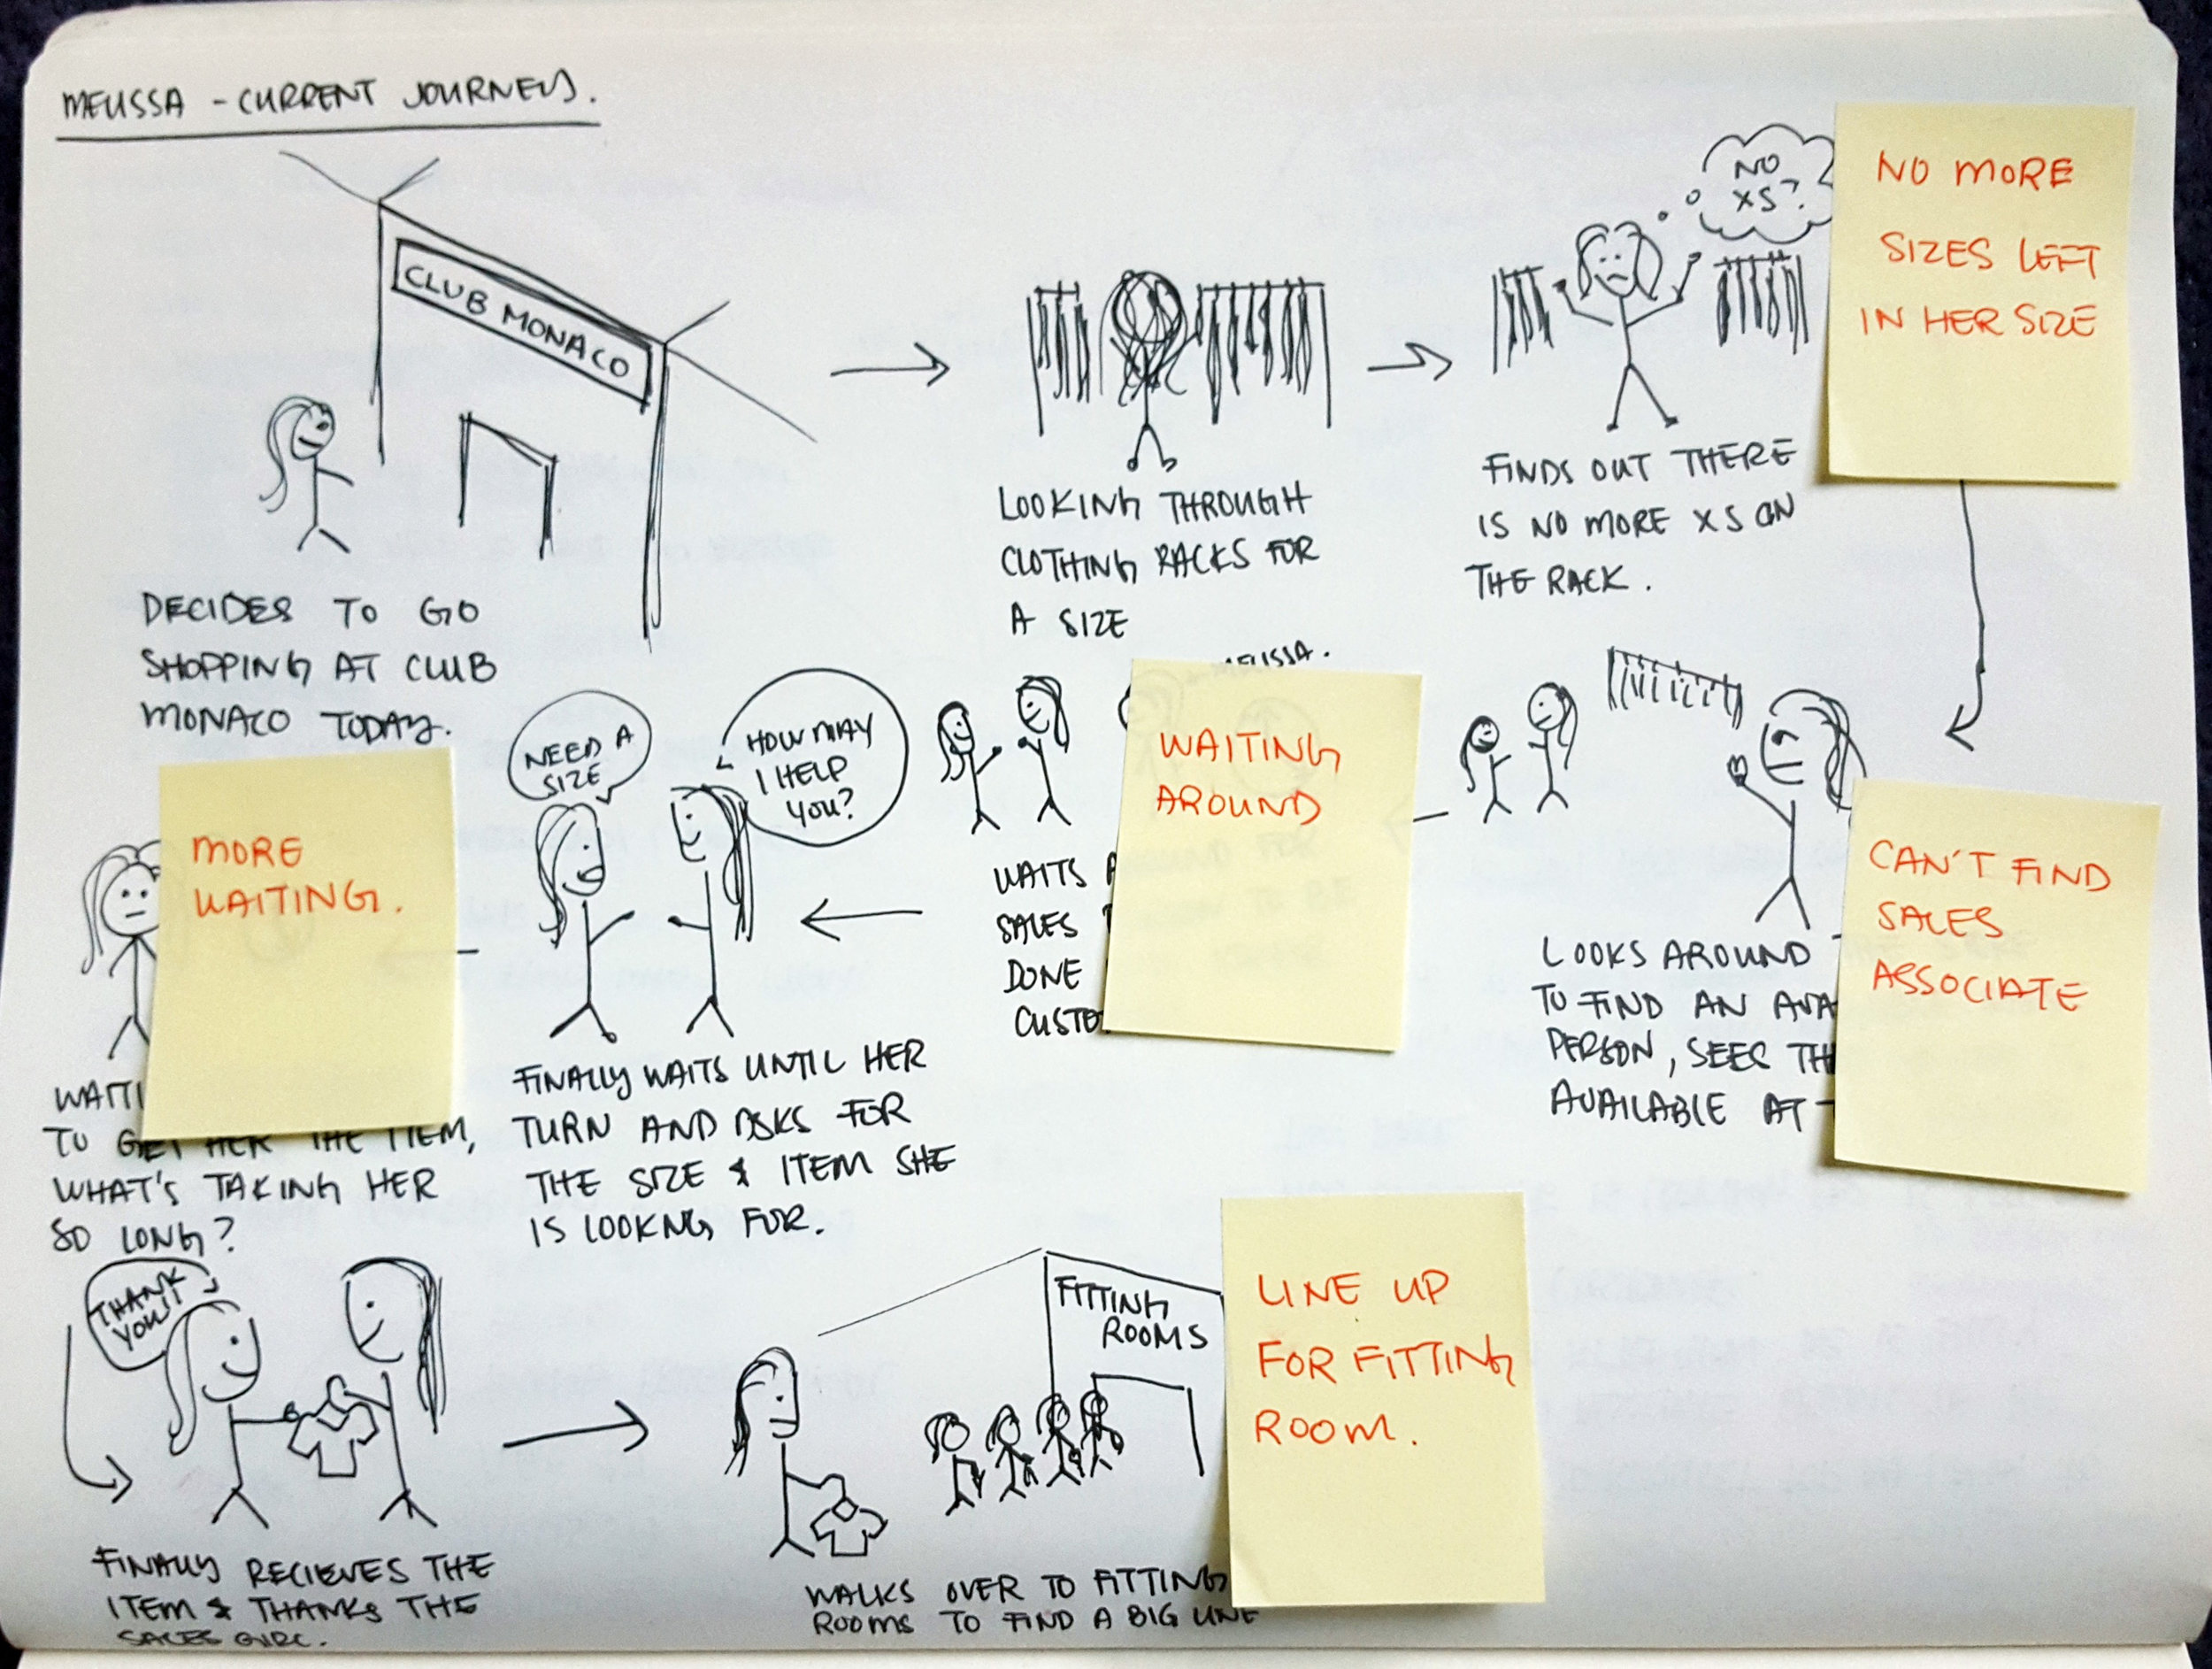 MELISSA - CURRENT JOURNEY.
CLUB MONACO
DECIDES TO GO
SHOPPING AT CLUB
MONACO TODAY.
LOOKING THROUGH
CLOTHING RACKS FOR
A SIZE
NO
XS?
FINDS OUT THERE
IS NO MORE XS ON
THE RACK.
NO MORE
SIZES LEFT
IN HER SIZE
LOOKS AROUND
TO FIND AN AVA
PERSON, SEES TH
AVAILABLE AT
CAN'T FIND
SALES
ASSOCIATE
ELISSA.
WAITS
SALES
DONE
CUSTO
WAITING
AROUND
NEED A
SIZE
HOW MAY
I HELP
YOU?
FINALLY WAITS UNTIL HER
TURN AND ASKS FOR
THE SIZE & ITEM SHE
IS LOOKNG FOR.
MORE
WAITING.
WAITI
TO GET HER THE ITEM,
WHAT'S TAKING HER
SO LONG?
THANK
YOU!
FINALLY RECIEVES THE
ITEM & THANKS THE
SALES GIRL.
FITTING
ROOMS
WALKS OVER TO FITTING
ROOMS TO FIND A BIG LINE
LINE UP
FOR FITTING
ROOM.